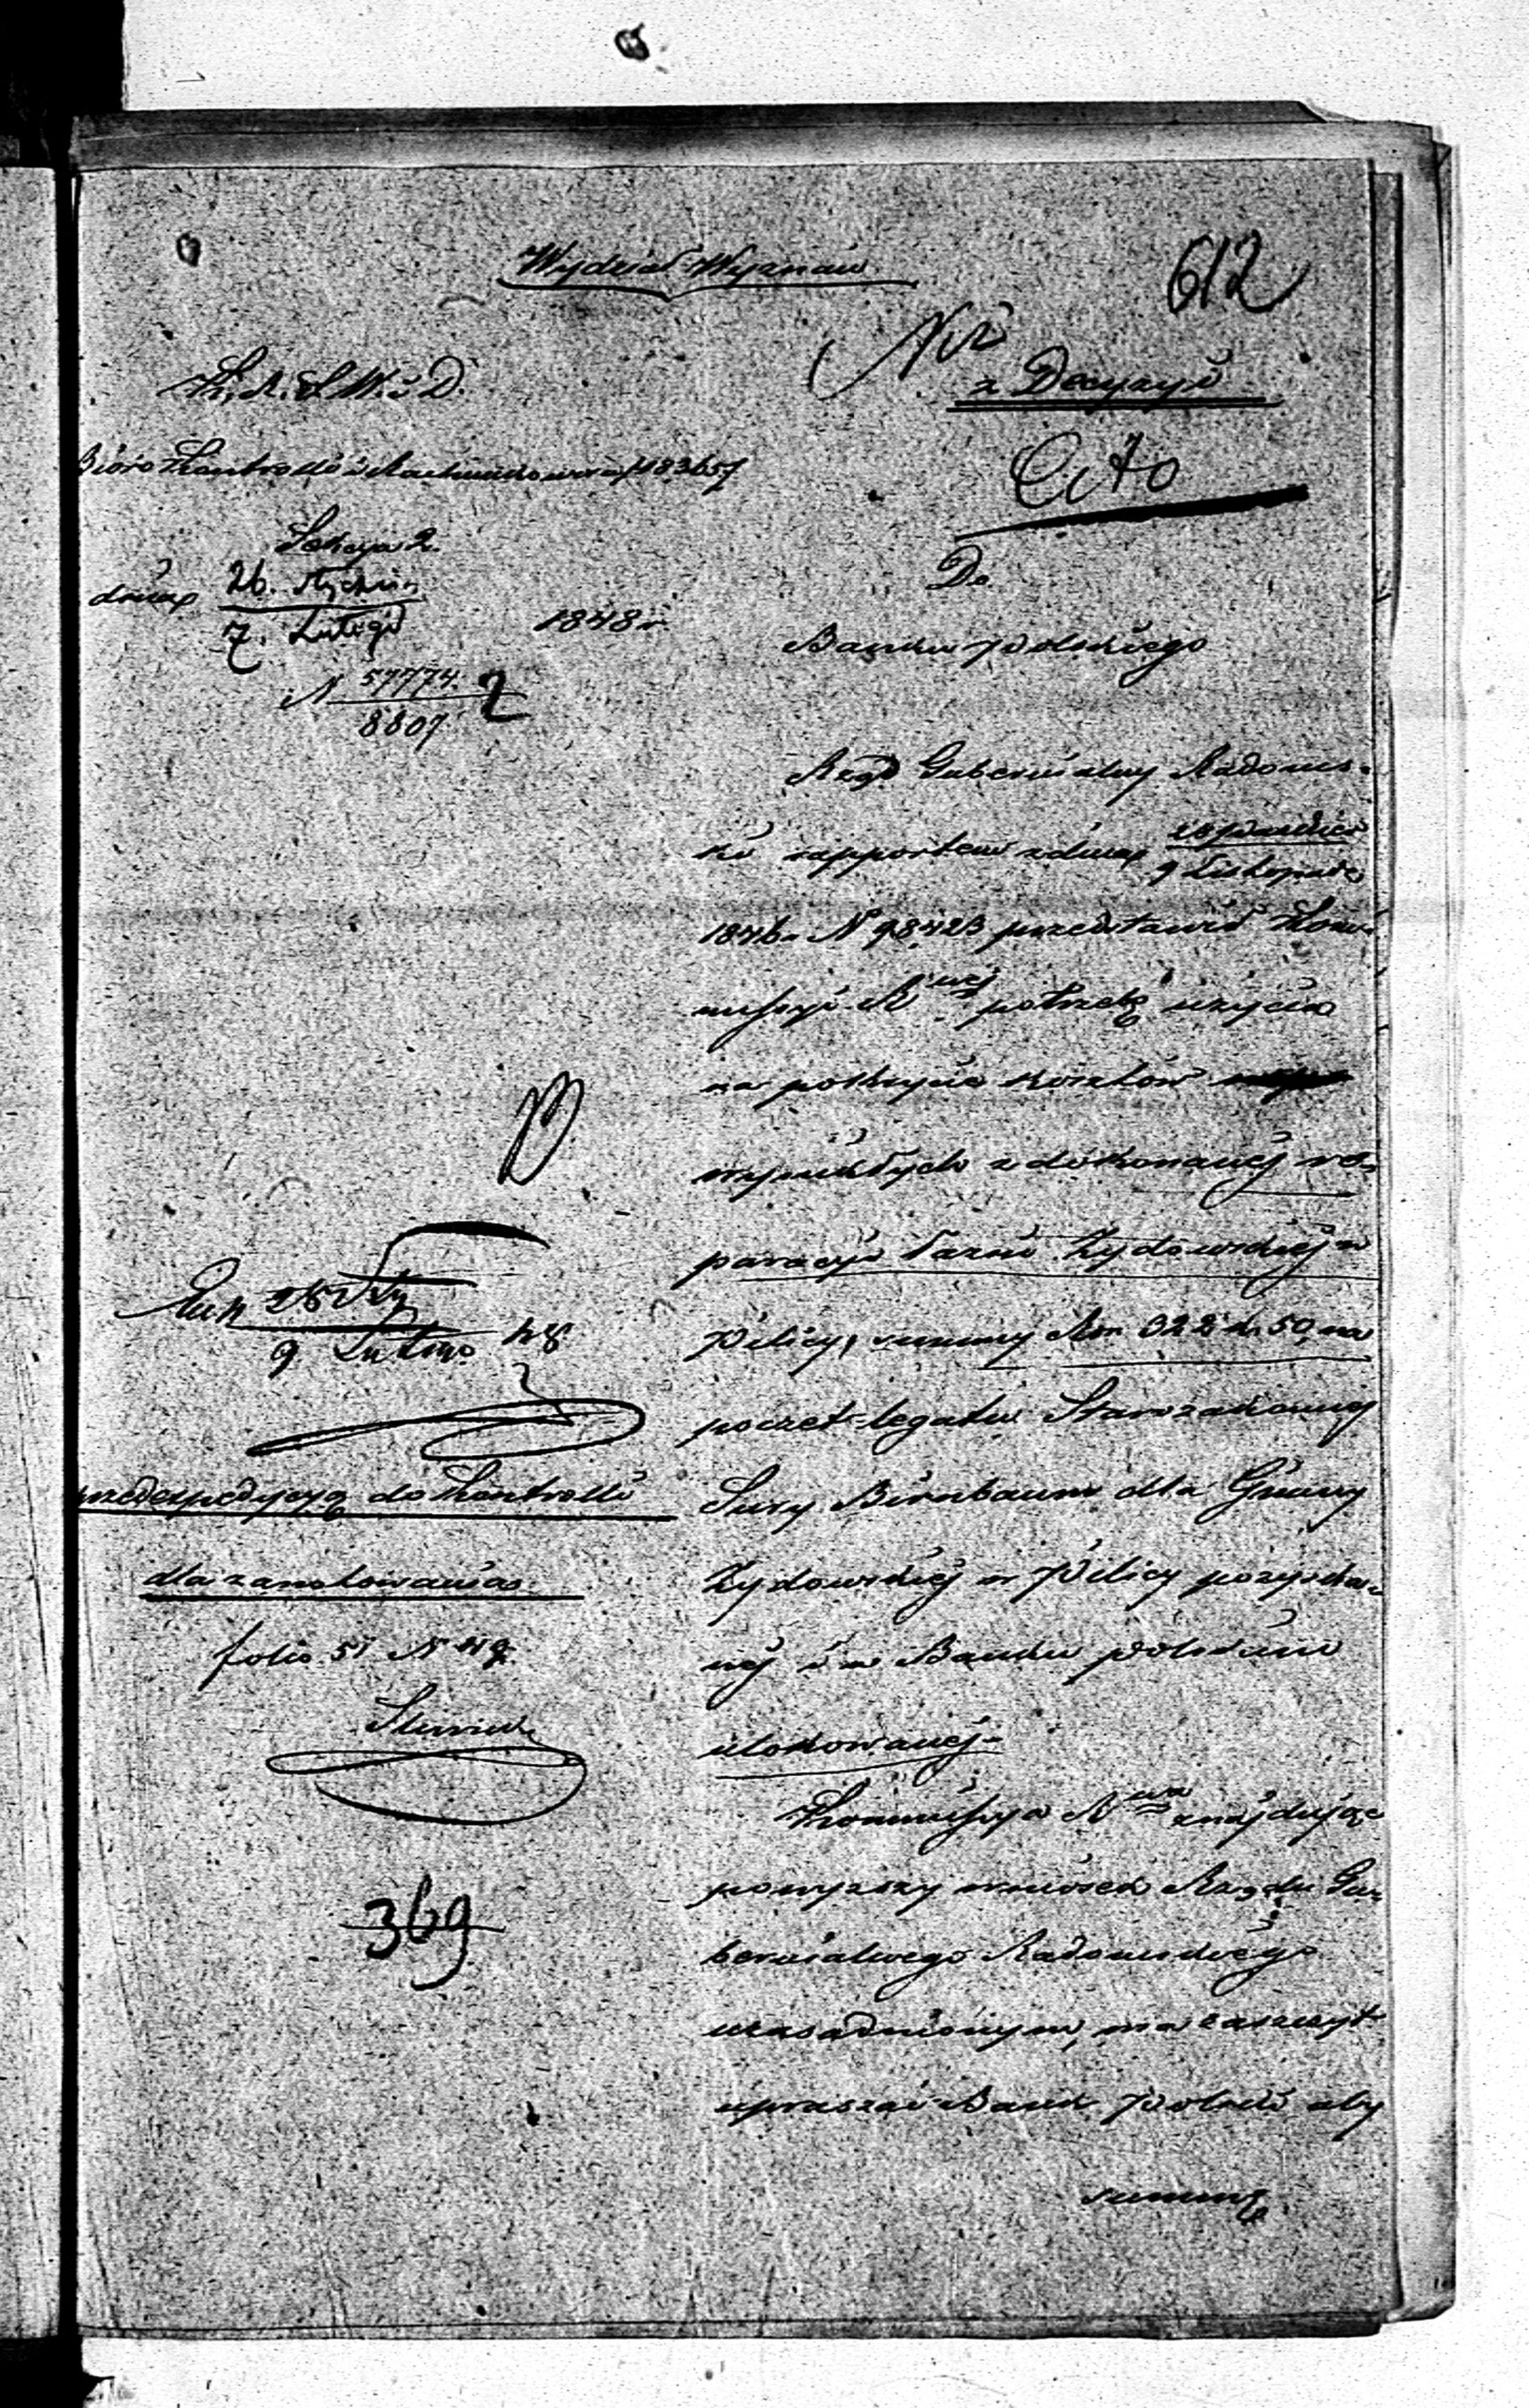 Wydział Wyznań
612
z Decyzyi
Cito
K. R. S. W. i D.
Bióro Kontrolli i Rachunkowości
Sekcya 2.
dnia 26. Stycznia
7. Lutego 1848 r.
N 57774.
8807.
Do
Banku Polskiego
Rząd Gubernialny Radoms-
ki rapportem z dnia
9 Listopada
1846 r. N 98423 przedstawił Kom-
missyi R potrzebę użycia
na pokrycie kosztów
wynikłych z dokonanej re-
paracyi łaźni Żydowskiej w
Pilicy, summy Rsr. 322 k. 50, na
poczet legatu Starozakonnej
Sury Birnbaum dla Gminy
Żydowskiej w Pilicy pozyska-
nej i w Banku Polskim
ulokowanej.
Kommissya R znajdując
powyższy wniosek Rządu Gu-
bernialnego Radomskiego
uzasadnionym, ma zaszczyt
upraszać Bank Polski aby
summę
9 Lutego 48
przed expedycyą do Kontrolli
dla zanotowania.
folio 51 N 49.
369